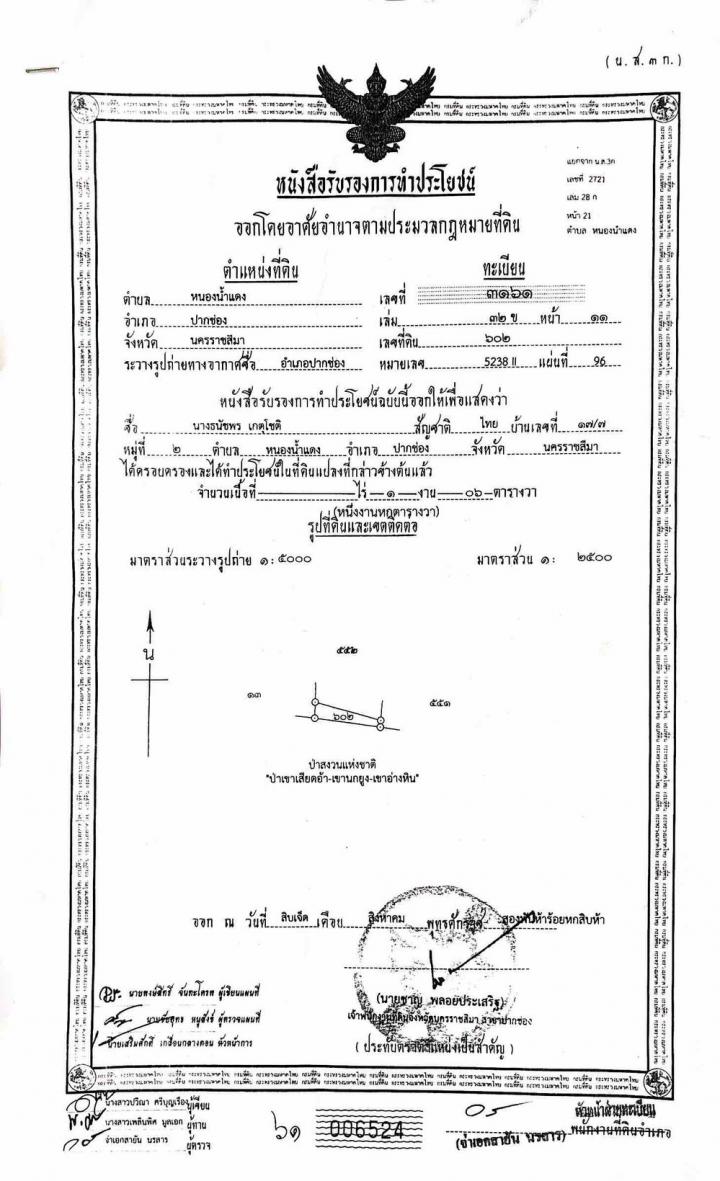 (น.ส.๓ ก.)
แยกจาก น.ส.3ก
เลขที่ 2721
เล่ม 28 ก
หน้า 21
ตำบล หนองน้ำแดง
หนังสือรับรองการทำประโยชน์
ออกโดยอาศัยอำนาจตามประมวลกฎหมายที่ดิน
ตำแหน่งที่ดิน ทะเบียน
ตำบล หนองน้ำแดง เลขที่ ๓๑๖๑
อำเภอ ปากช่อง เล่ม ๓๒ ข หน้า ๑๑
จังหวัด นครราชสีมา เลขที่ดิน ๖๐๒
ระวางรูปถ่ายทางอากาศชื่อ อำเภอปากช่อง หมายเลข 5238 II แผ่นที่ 96
หนังสือรับรองการทำประโยชน์ฉบับนี้ออกให้เพื่อแสดงว่า
ชื่อ นางธนัชพร เกตุโชติ สัญชาติ ไทย บ้านเลขที่ ๑๗/๗
หมู่ที่ ๒ ตำบล หนองน้ำแดง อำเภอ ปากช่อง จังหวัด นครราชสีมา
ได้ครอบครองและได้ทำประโยชน์ในที่ดินแปลงที่กล่าวข้างต้นแล้ว
จำนวนเนื้อที่ — ไร่ — ๑ — งาน — ๐๖ — ตารางวา
(หนึ่งงานหกตารางวา)
รูปที่ดินและเขตติดต่อ
มาตราส่วนระวางรูปถ่าย ๑: ๕๐๐๐ มาตราส่วน ๑: ๒๕๐๐
น
๕๕๒
๑๓
๕๕๑
๖๐๒
ป่าสงวนแห่งชาติ
"ป่าเขาเสียดอ้า-เขานกยูง-เขาอ่างหิน"
ออก ณ วันที่ สิบเจ็ด เดือน สิงหาคม พุทธศักราช สองพันห้าร้อยหกสิบห้า
(นายชาญ พลอยประเสริฐ)
เจ้าพนักงานที่ดินจังหวัดนครราชสีมา สาขาปากช่อง
(ประทับตราตำแหน่งเป็นสำคัญ)
นายพงษ์สิทธิ์ จันทะโคตร ผู้เขียนแผนที่
ผู้ตรวจแผนที่
หัวหน้าการ
นางสาวปวีณา ศรีบุญเรือง ผู้เขียน
นางสาวเพลินพิศ มูลเอก ผู้ทาน
จ่าเอกสายัน นรสาร ผู้ตรวจ
๖๑ 006524
(จ่าเอกสายัน นรสาร)
หัวหน้าฝ่ายทะเบียน
พนักงานที่ดินอำเภอ